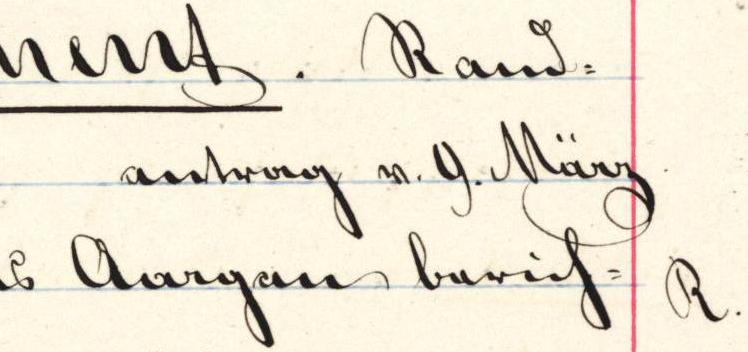 nent. Rand=
antrag v. 9. März
s Aargau berich=
R.